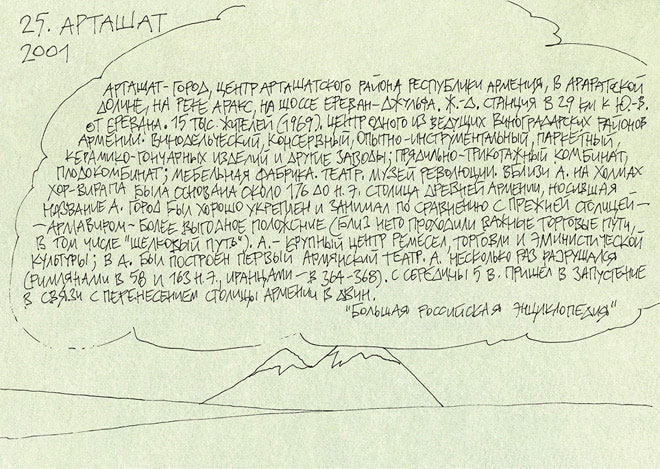 25. АРТАШАТ
2001
АРТАШАТ - ГОРОД, ЦЕНТР АРТАШАТСКОГО РАЙОНА РЕСПУБЛИКИ АРМЕНИЯ, В АРАРАТСКОЙ
ДОЛИНЕ, НА РЕКЕ АРАКС, НА ШОССЕ ЕРЕВАН-ДЖУЛЬФА. Ж.-Д. СТАНЦИЯ В 29 КМ К Ю.-В.
ОТ ЕРЕВАНА. 15 ТЫС. ЖИТЕЛЕЙ (1969). ЦЕНТР ОДНОГО ИЗ ВЕДУЩИХ ВИНОГРАДАРСКИХ РАЙОНОВ
АРМЕНИИ. ВИНОДЕЛЬЧЕСКИЙ, КОНСЕРВНЫЙ, ОПЫТНО-ИНСТРУМЕНТАЛЬНЫЙ, ПАРКЕТНЫЙ,
КЕРАМИКО-ГОНЧАРНЫХ ИЗДЕЛИЙ И ДРУГИЕ ЗАВОДЫ; ПРЯДИЛЬНО-ТРИКОТАЖНЫЙ КОМБИНАТ,
ПЛОДОКОМБИНАТ; МЕБЕЛЬНАЯ ФАБРИКА. ТЕАТР. МУЗЕЙ РЕВОЛЮЦИИ. ВБЛИЗИ А. НА ХОЛМАХ
ХОР-ВИРАПА БЫЛА ОСНОВАНА ОКОЛО 176 ДО Н.Э. СТОЛИЦА ДРЕВНЕЙ АРМЕНИИ, НОСИВШАЯ
НАЗВАНИЕ А. ГОРОД БЫЛ ХОРОШО УКРЕПЛЕН И ЗАНИМАЛ ПО СРАВНЕНИЮ С ПРЕЖНЕЙ СТОЛИЦЕЙ -
- АРМАВИРОМ - БОЛЕЕ ВЫГОДНОЕ ПОЛОЖЕНИЕ (БЛИЗ НЕГО ПРОХОДИЛИ ВАЖНЫЕ ТОРГОВЫЕ ПУТИ,
В ТОМ ЧИСЛЕ "ШЕЛКОВЫЙ ПУТЬ"). А. - КРУПНЫЙ ЦЕНТР РЕМЕСЕЛ, ТОРГОВЛИ И ЭЛЛИНИСТИЧЕСКОЙ
КУЛЬТУРЫ; В А. БЫЛ ПОСТРОЕН ПЕРВЫЙ АРМЯНСКИЙ ТЕАТР. А. НЕСКОЛЬКО РАЗ РАЗРУШАЛСЯ
(РИМЛЯНАМИ В 58 И 163 Н.Э., ИРАНЦАМИ - В 364-368). С СЕРЕДИНЫ 5 В. ПРИШЕЛ В ЗАПУСТЕНИЕ
В СВЯЗИ С ПЕРЕНЕСЕНИЕМ СТОЛИЦЫ АРМЕНИИ В ДВИН.
"БОЛЬШАЯ РОССИЙСКАЯ ЭНЦИКЛОПЕДИЯ"